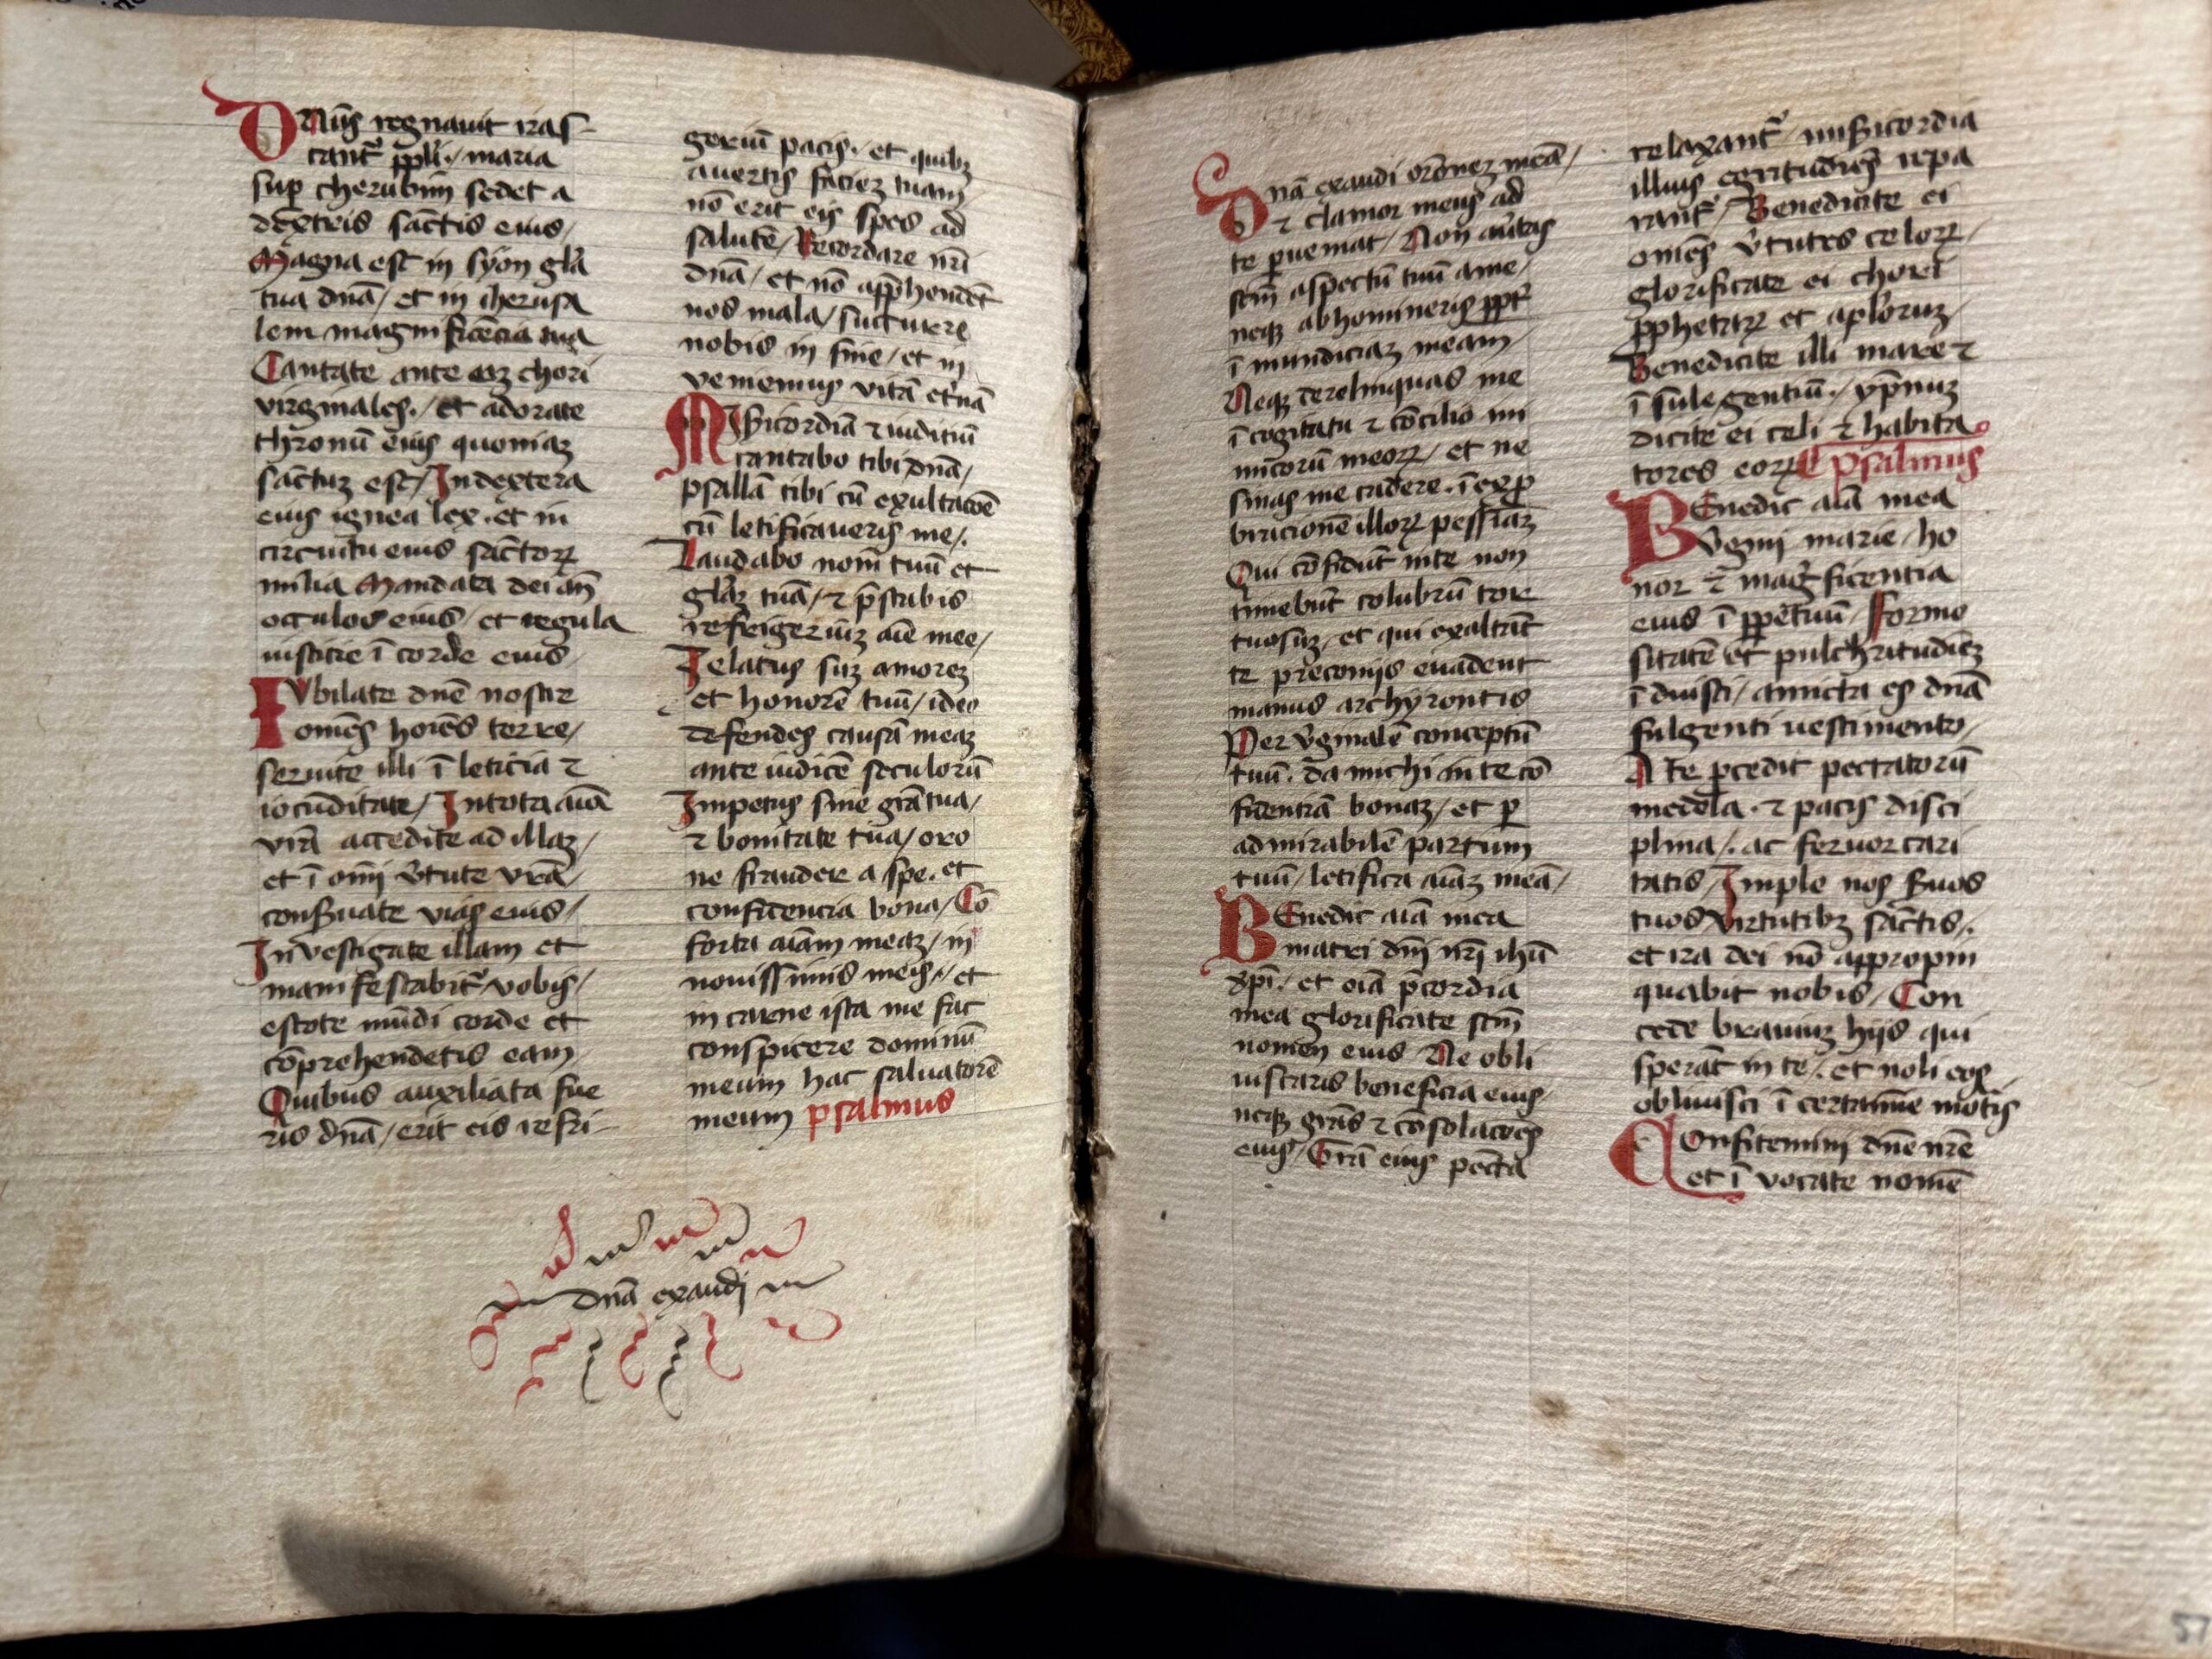 Dnūs regnauit iras-
cantr̄ ppl̄i / maria
sup cherubim sedet a
dextris sāctis eius /
Magna est in syon gl̄a
tua dnā / et in iherusa
lem magnificēcia tua
Cantate ante eaz chori
virginales / et adorate
thronū eius quoniaz
sāctuz est / In dextera
eius ignea lex. et in
circuitu eius sāctoꝝ
milia Mandata dei añ
occulos eius / et regula
iusticie ī corde eius
Iubilate dnē nostre
om̄es hoiēs terre /
seruite illi ī leticia ⁊
iocūditate / In tota aīā
vrā accedite ad illaz /
et ī om̄i v̄tute vrā /
conꝰuate vias eius /
Inuestigate illam et
manifestabitr̄ vobis /
estote mūdi corde et
cōprehendetis eam /
Quibus auxiliata fue
ris dnā / erit eis refri-
geriū pacis. et quibꝫ
auertis faciez tuam
nō erit eis spes ad
salutē / Recordare nr̄i
dnā / et nō apphendēt
nos mala / succurre
nobis in fine / et in
veniemus vitā et̄nā
Misericordiā ⁊ iuditiū
cantabo tibi dnā /
psallā tibi cū exultacōē
cū letificaueris me /.
Laudabo nom̄ tuū et
gl̄az tuā / ⁊ p̄stabis
refrigeriūz aīe mee /
Zelatus suz amorez
et honorē tuū / ideo
defendes causā meaz
ante iudicē seculorū
Impetus sine grā tua /
⁊ bonitate tua / oro
ne frauder a spe. et
confidencia bona / Cō
forta aīam meaz / in
nouissimis meis / et
in carne ista me fac
conspicere dominū
meum hac saluatorē
meum psalmus
dnā exaudi
Dnā exaudi orōnez meā /
⁊ clamor meus ad
te ꝑueniat / Non au̅tas
scm̄ aspectū tuū a me /
neqꝫ abhomineris ꝓpt̄
īmundiciaz meam
Neqꝫ derelinquas me
ī cogitatu ⁊ cōcilio ini
micorū meoꝝ / et ne
sinas me cadere. ī exꝓ
bracionē illoꝝ pessīaz
Qui cōfidūt in te non
timebūt colubrū tor
tuosuz / et qui exaltāt
te preconijs euadent
manus archyrontis
Per v̄ginalē conceptū
tuū. da michi in te cō
fidentiā bonaz / et ꝑ
admirabilē partum
tuū / letifica aīaz meā /
BEnedic aīā mea
matri dn̄i nr̄i ihū
xp̄i. et oīā p̄cordia
mea glorificate scm̄
nomen eius Ne obli
uiscaris beneficia eius
neqꝫ grās ⁊ cōsolacōes
eius / Grā eius pēcta
relaxantr̄ / miscicordia
illius egritudiēs repa
rantr̄ / Benedicite ei
om̄es v̄tutes celoꝝ /
glorificate ei chori
ꝓphetaꝝ et apl̄oruz
Benedicite illi mare ⁊
īsule gentiū / ympnuz
dicite ei celi ⁊ habita
tores eoꝝ psalmus
BEnedic aīā mea
v̄gini marie / ho
nor ⁊ mag̅ficentia
eius ī ꝑpetuū / Formo
sitatē et pulchritudiēz
īduisti / amicta es dnā
fulgenti uestimento /
A te ꝓcedit peccatorū
medela. ⁊ pacis disci
plina /. ac feruor cari
tatis / Imple nos ẜuos
tuos virtutibꝫ sāctis /.
et ira dei nō appropin
quabit nobis / Con
cede brauiuz hijs qui
sperāt in te /. et noli eos
obliuisci ī certamīe mōtis
COnfitemini dnē nr̄e
et īvocate nomē
57